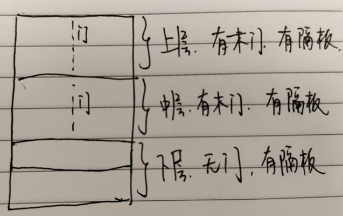 门 上层. 有木门. 有隔板.
门 中层. 有木门. 有隔板
下层. 无门, 有隔板